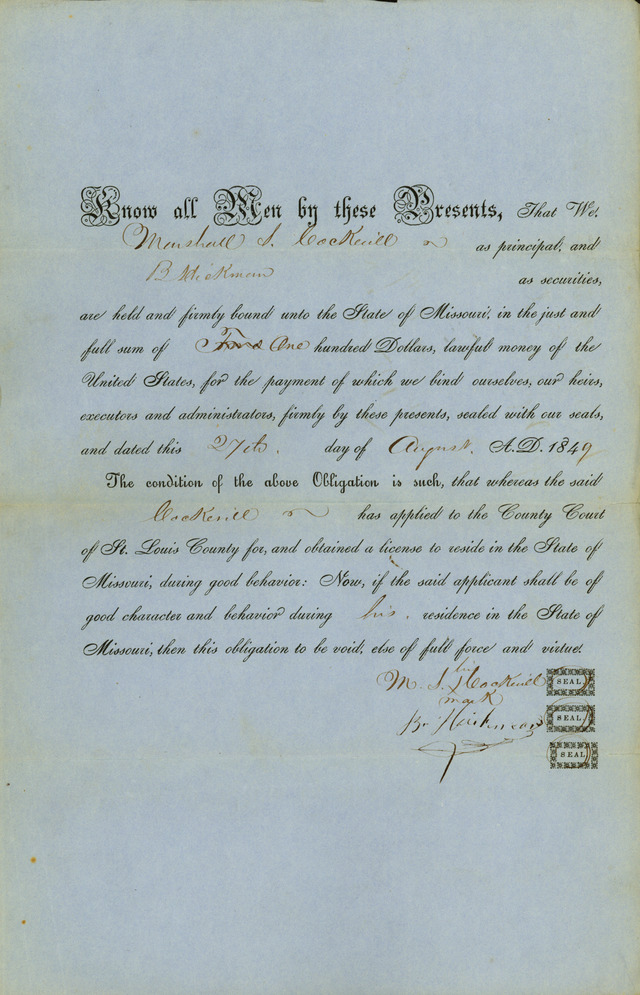 Know all Men by these Presents, That We,
Marshall S. Cockerill as principal, and
B Hickman as securities,
are held and firmly bound unto the State of Missouri, in the just and
full sum of One hundred Dollars, lawful money of the
United States, for the payment of which we bind ourselves, our heirs,
executors and administrators, firmly by these presents, sealed with our seals,
and dated this 27th. day of August. A.D. 1849
The condition of the above Obligation is such, that whereas the said
Cockerill has applied to the County Court
of St. Louis County for, and obtained a license to reside in the State of
Missouri, during good behavior: Now, if the said applicant shall be of
good character and behavior during his. residence in the State of
Missouri, then this obligation to be void, else of full force and virtue.
his
M. S. Cockerill SEAL
mark
Hickman SEAL
SEAL